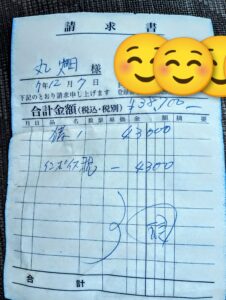 請求書
丸畑 様
7年12月7日
下記のとおり請求申し上げます
合計金額(税込・税別) ¥38,700-
月日 品名 数量 単価 金額 摘要
1 43000
インボイス - 4300
合計